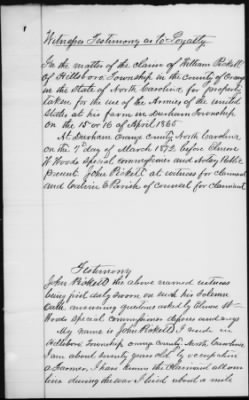 1
Witnesses Testimony as to Loyalty
In the matter of the claim of William Pickett
of Hillsboro Township in the county of Orange
in the State of North Carolina for property
taken for the use of the Armies of the United
States at his farm in Durham Township
on the 15 or 16 of April 1865
At Durham Orange County North Carolina
on the 7 day of March 1872 before Elhew
W Woods special commissioner and Notary Public
Present John Pickett as witness for claimant
and E Parish of counsel for claimant
Testimony
John Pickett the above named witness
being first duly sworn on such his solemn
Oath answering questions asked by W
Woods special commissioner deposes and says
My name is John Pickett I reside in
Hillsboro Township Orange County North Carolina
I am about twenty years old by occupation
a Farmer I have known the claimant all my
time during the war I lived about a mile